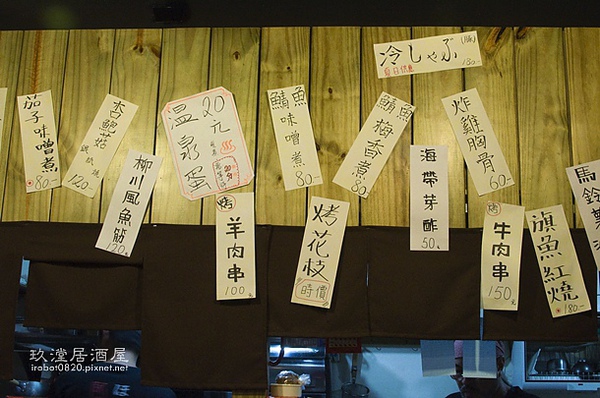 茄子味噌煮
80.-
杏鮑菇
120.-
柳川風魚筋
120.-
溫泉蛋
20元
冷しゃぶ
180.-
鯖魚味噌煮
80.-
鯖魚梅香煮
80.-
炸雞胸骨
60.-
海帶芽酢
50.-
烤羊肉串
100元
烤花枝
時價
烤牛肉串
150元
旗魚紅燒
180.-
馬鈴薯
玖瀅居酒屋
irobot0820.pixnet.net